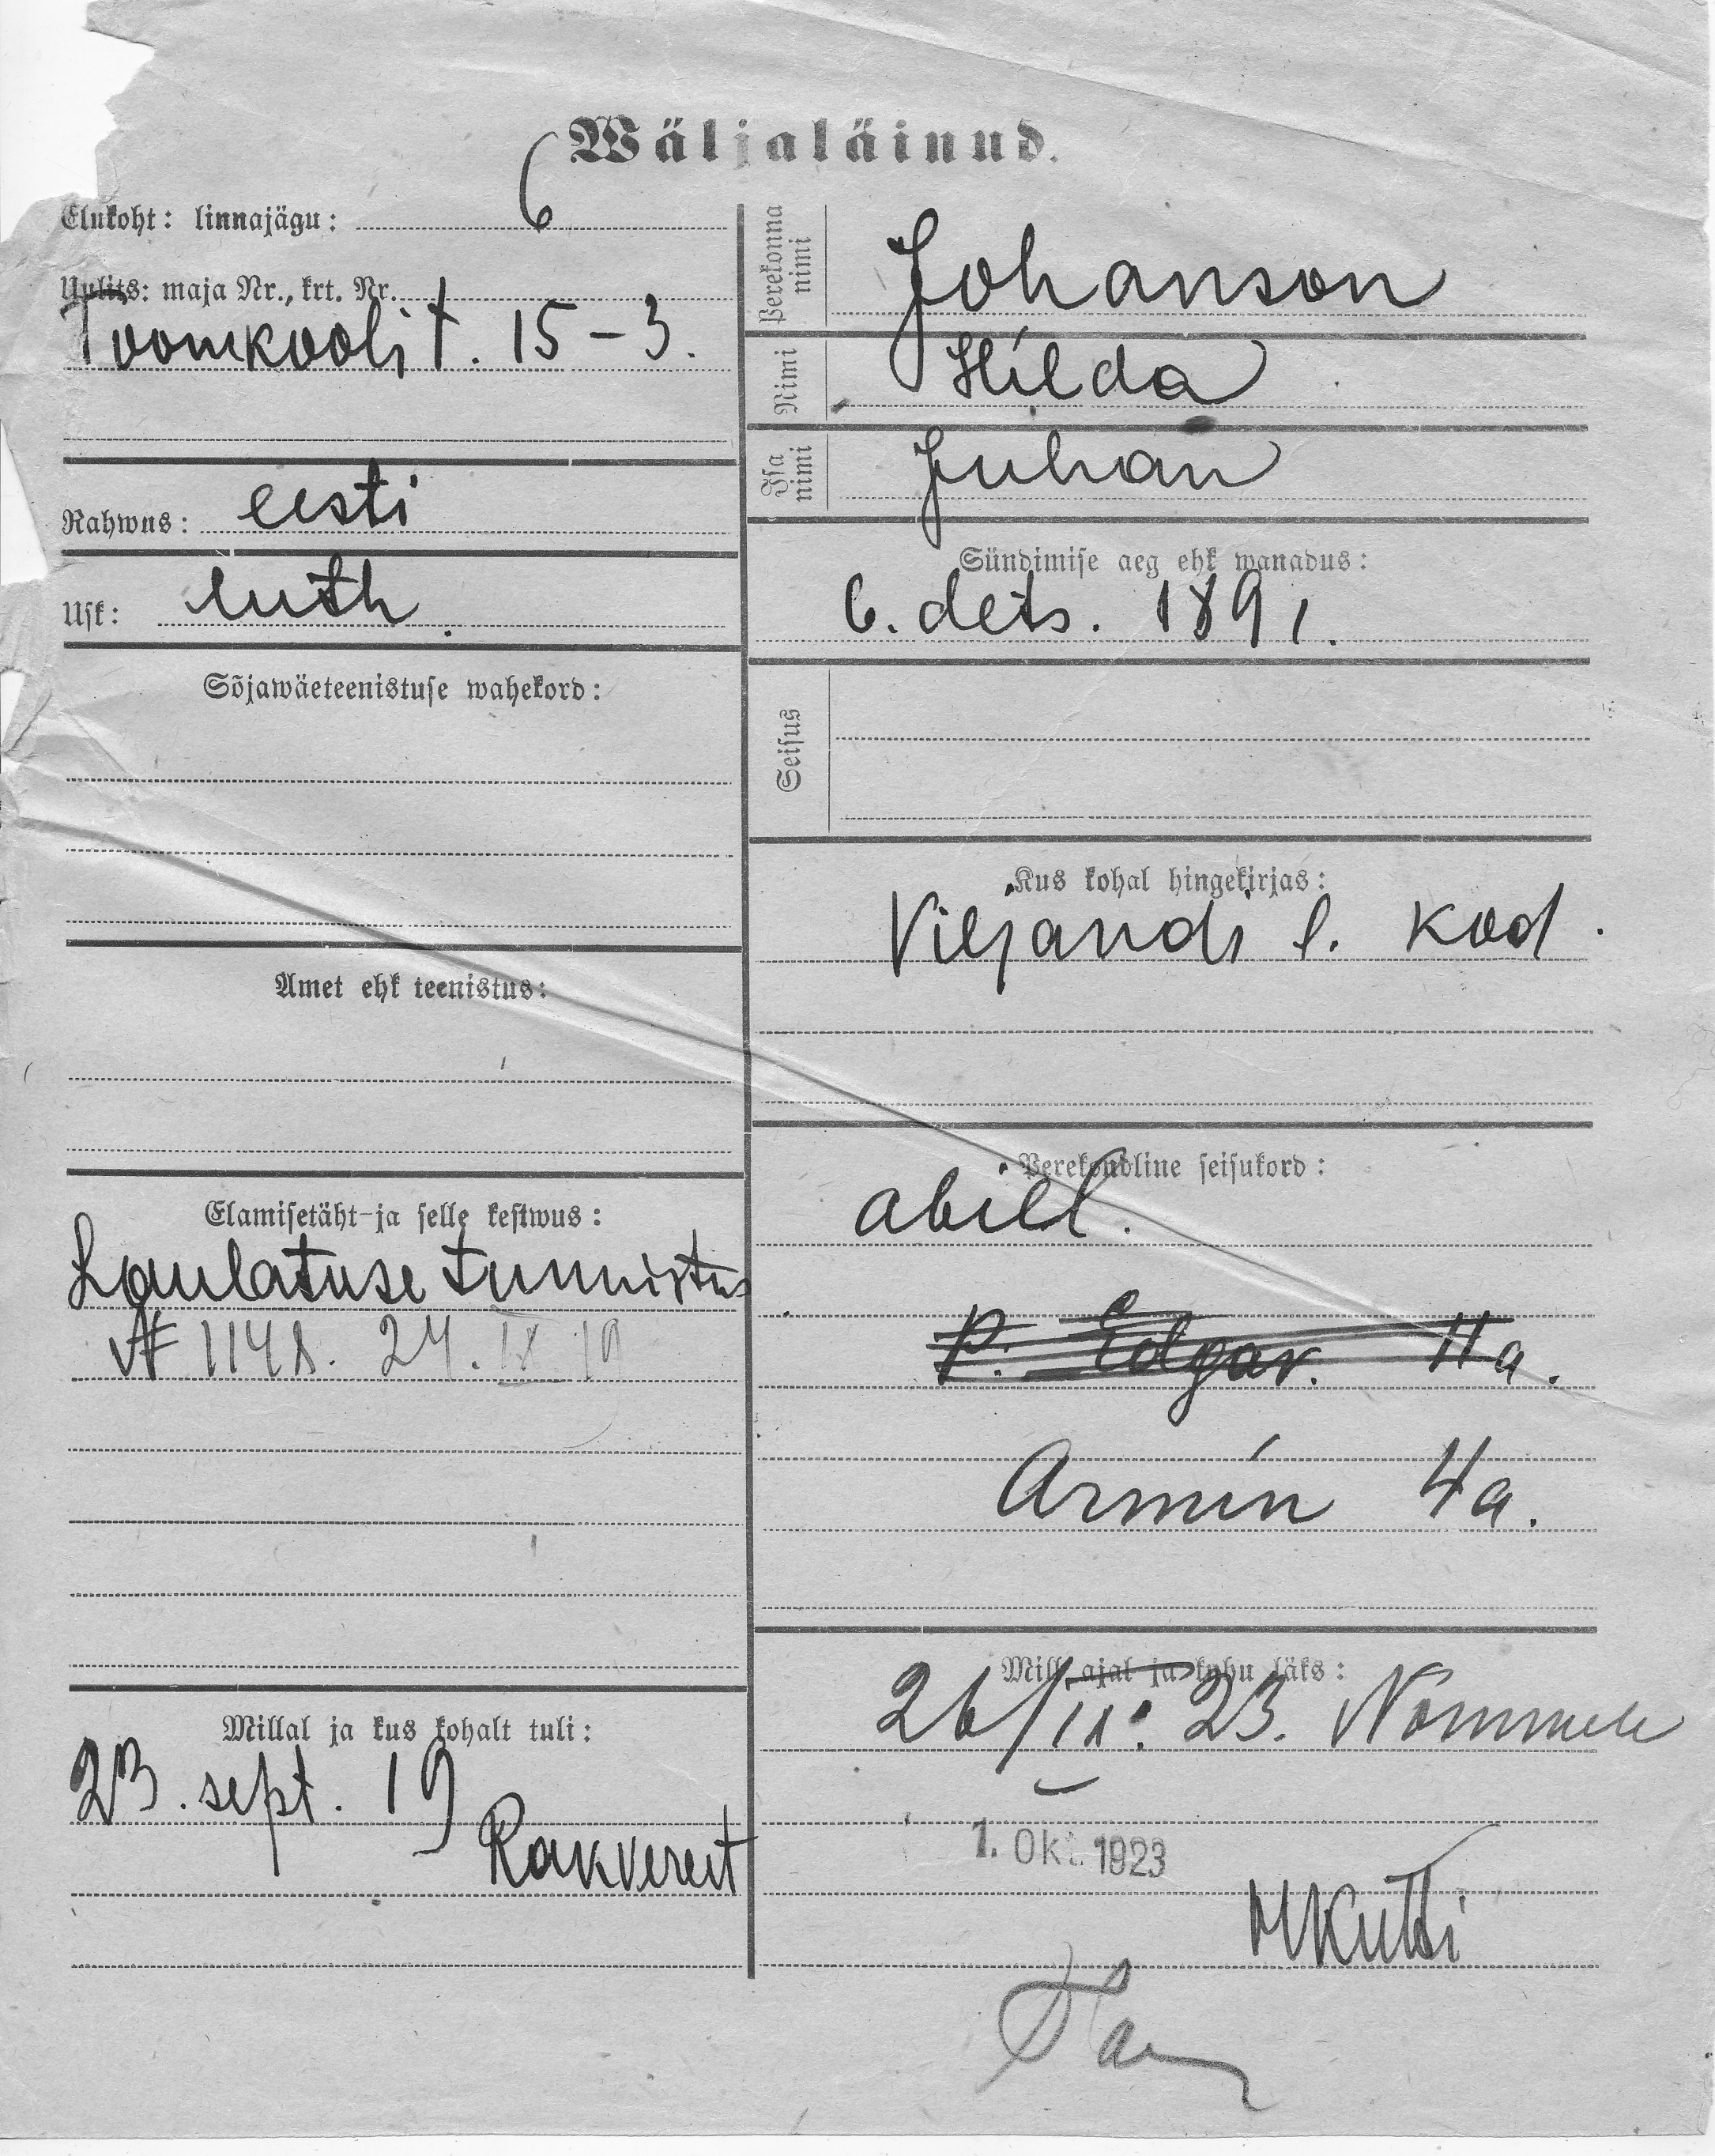 Wäljaläinud.
Elukoht: linnajagu: 6
Uulits: maja Nr., krt. Nr.
Toomkooli t. 15-3.
Rahwus: eesti
Usk: luth.
Sõjawäeteenistuse wahekord:
Amet ehk teenistus:
Elamisetäht ja selle kestwus:
Laulatuse tunnistus
№ 1148. 24. IX 19
Millal ja kus kohalt tuli:
23. sept. 19
Rakverest
Perekonna nimi Johanson
Nimi Hilda
Isa nimi Juhan
Sündimise aeg ehk wanadus:
6. dets. 1891.
Seisus
Kus kohal hingekirjas:
Viljandi l. kod.
Perekondline seisukord:
abiel.
P. Edgar. 11 a.
Armin 4 a.
Mill ajal ja kuhu läks:
26/IX. 23. Nõmmele
1. Okt. 1923